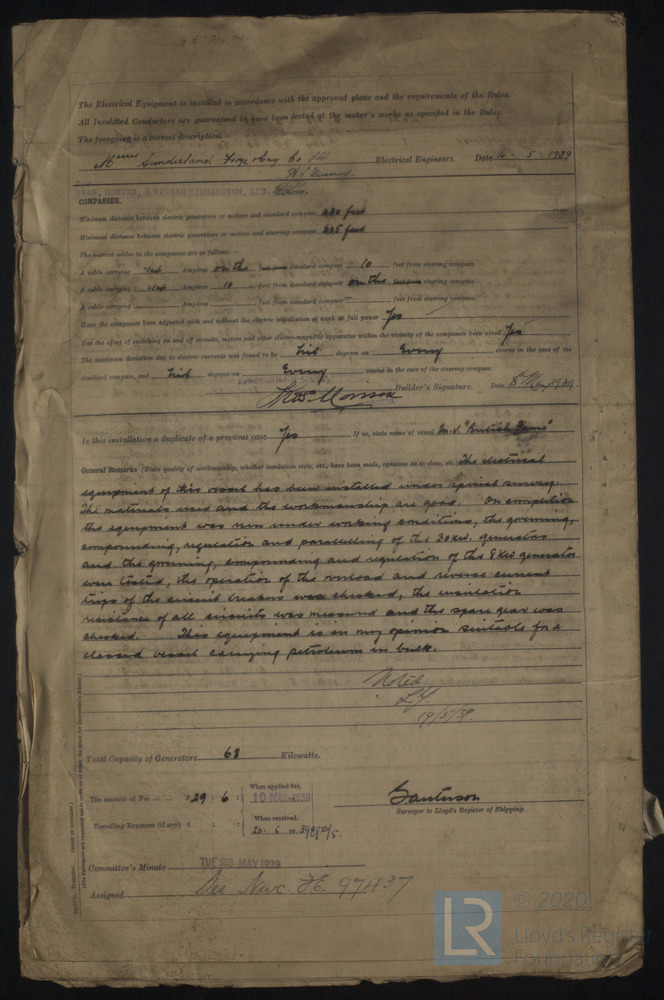 The Electrical Equipment is installed in accordance with the approved plans and the requirements of the Rules.
All Insulated Conductors are guaranteed to have been tested at the maker's works as specified in the Rules.
The foregoing is a correct description.
Messrs Sunderland Forge & Eng Co Ltd Electrical Engineers. Date 4 - 5 - 1939
SWAN, HUNTER, & WIGHAM RICHARDSON, LTD.
COMPASSES.
Minimum distance between electric generators or motors and standard compass 220 feet
Minimum distance between electric generators or motors and steering compass 225 feet
The nearest cables to the compasses are as follows:—
A cable carrying Amperes on the feet from standard compass 10 feet from steering compass.
A cable carrying Amperes 10 feet from standard compass on the feet from steering compass.
A cable carrying Amperes feet from standard compass feet from steering compass.
Have the compasses been adjusted with and without the electric installation at work at full power Yes
Has the effect of switching on and off circuits, motors and other electro-magnetic apparatus within the vicinity of the compasses been noted Yes
The maximum deviation due to electric currents was found to be Nil degrees on Every course in the case of the
standard compass, and Nil degrees on Every course in the case of the steering compass.
Builder's Signature. Date 8 May 1939.
Is this installation a duplicate of a previous case Yes If so, state name of vessel M.V. "British
General Remarks (State quality of workmanship, whether insulation tests, etc., have been made, opinions as to class, etc.) The electrical
equipment of this vessel has been installed under special survey.
The materials used and the workmanship are good. On completion
the equipment was run under working conditions, the governing,
compounding, regulation and paralleling of the 30 kw. generators
and the governing, compounding and regulation of the 8 Kw generator
were tested, the operation of the overload and reverse current
trips of the circuit breakers were checked, the insulation
resistance of all circuits was measured and the spare gear was
checked. This equipment is in my opinion suitable for a
classed vessel carrying petroleum in bulk.
Noted
19/5/39.
Total Capacity of Generators 68 Kilowatts.
The amount of Fee £ 29 : 6 : When applied for, 10 MAY 1939
Surveyor to Lloyd's Register of Shipping.
Travelling Expenses (if any) £ : : When received, 20. 5. 19 39
Committee's Minute TUE 23 MAY 1939
Assigned See Nwc. F.E. 97437
© 2020
Lloyd's Register
Foundation
LR